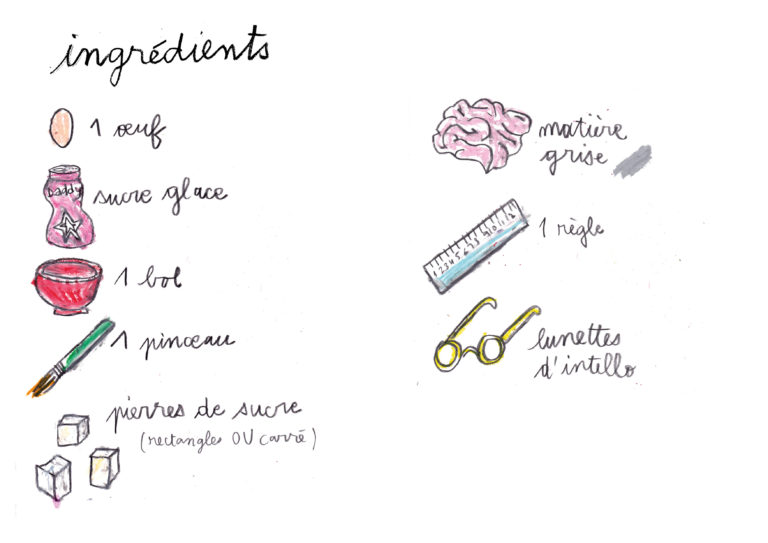 ingrédients
1 œuf
Daddy
sucre glace
1 bol
1 pinceau
pierres de sucre
(rectangles OU carré)
matière
grise
1 règle
1 2 3 4 5 6 7 8 9 10 11 12
lunettes
d'intello